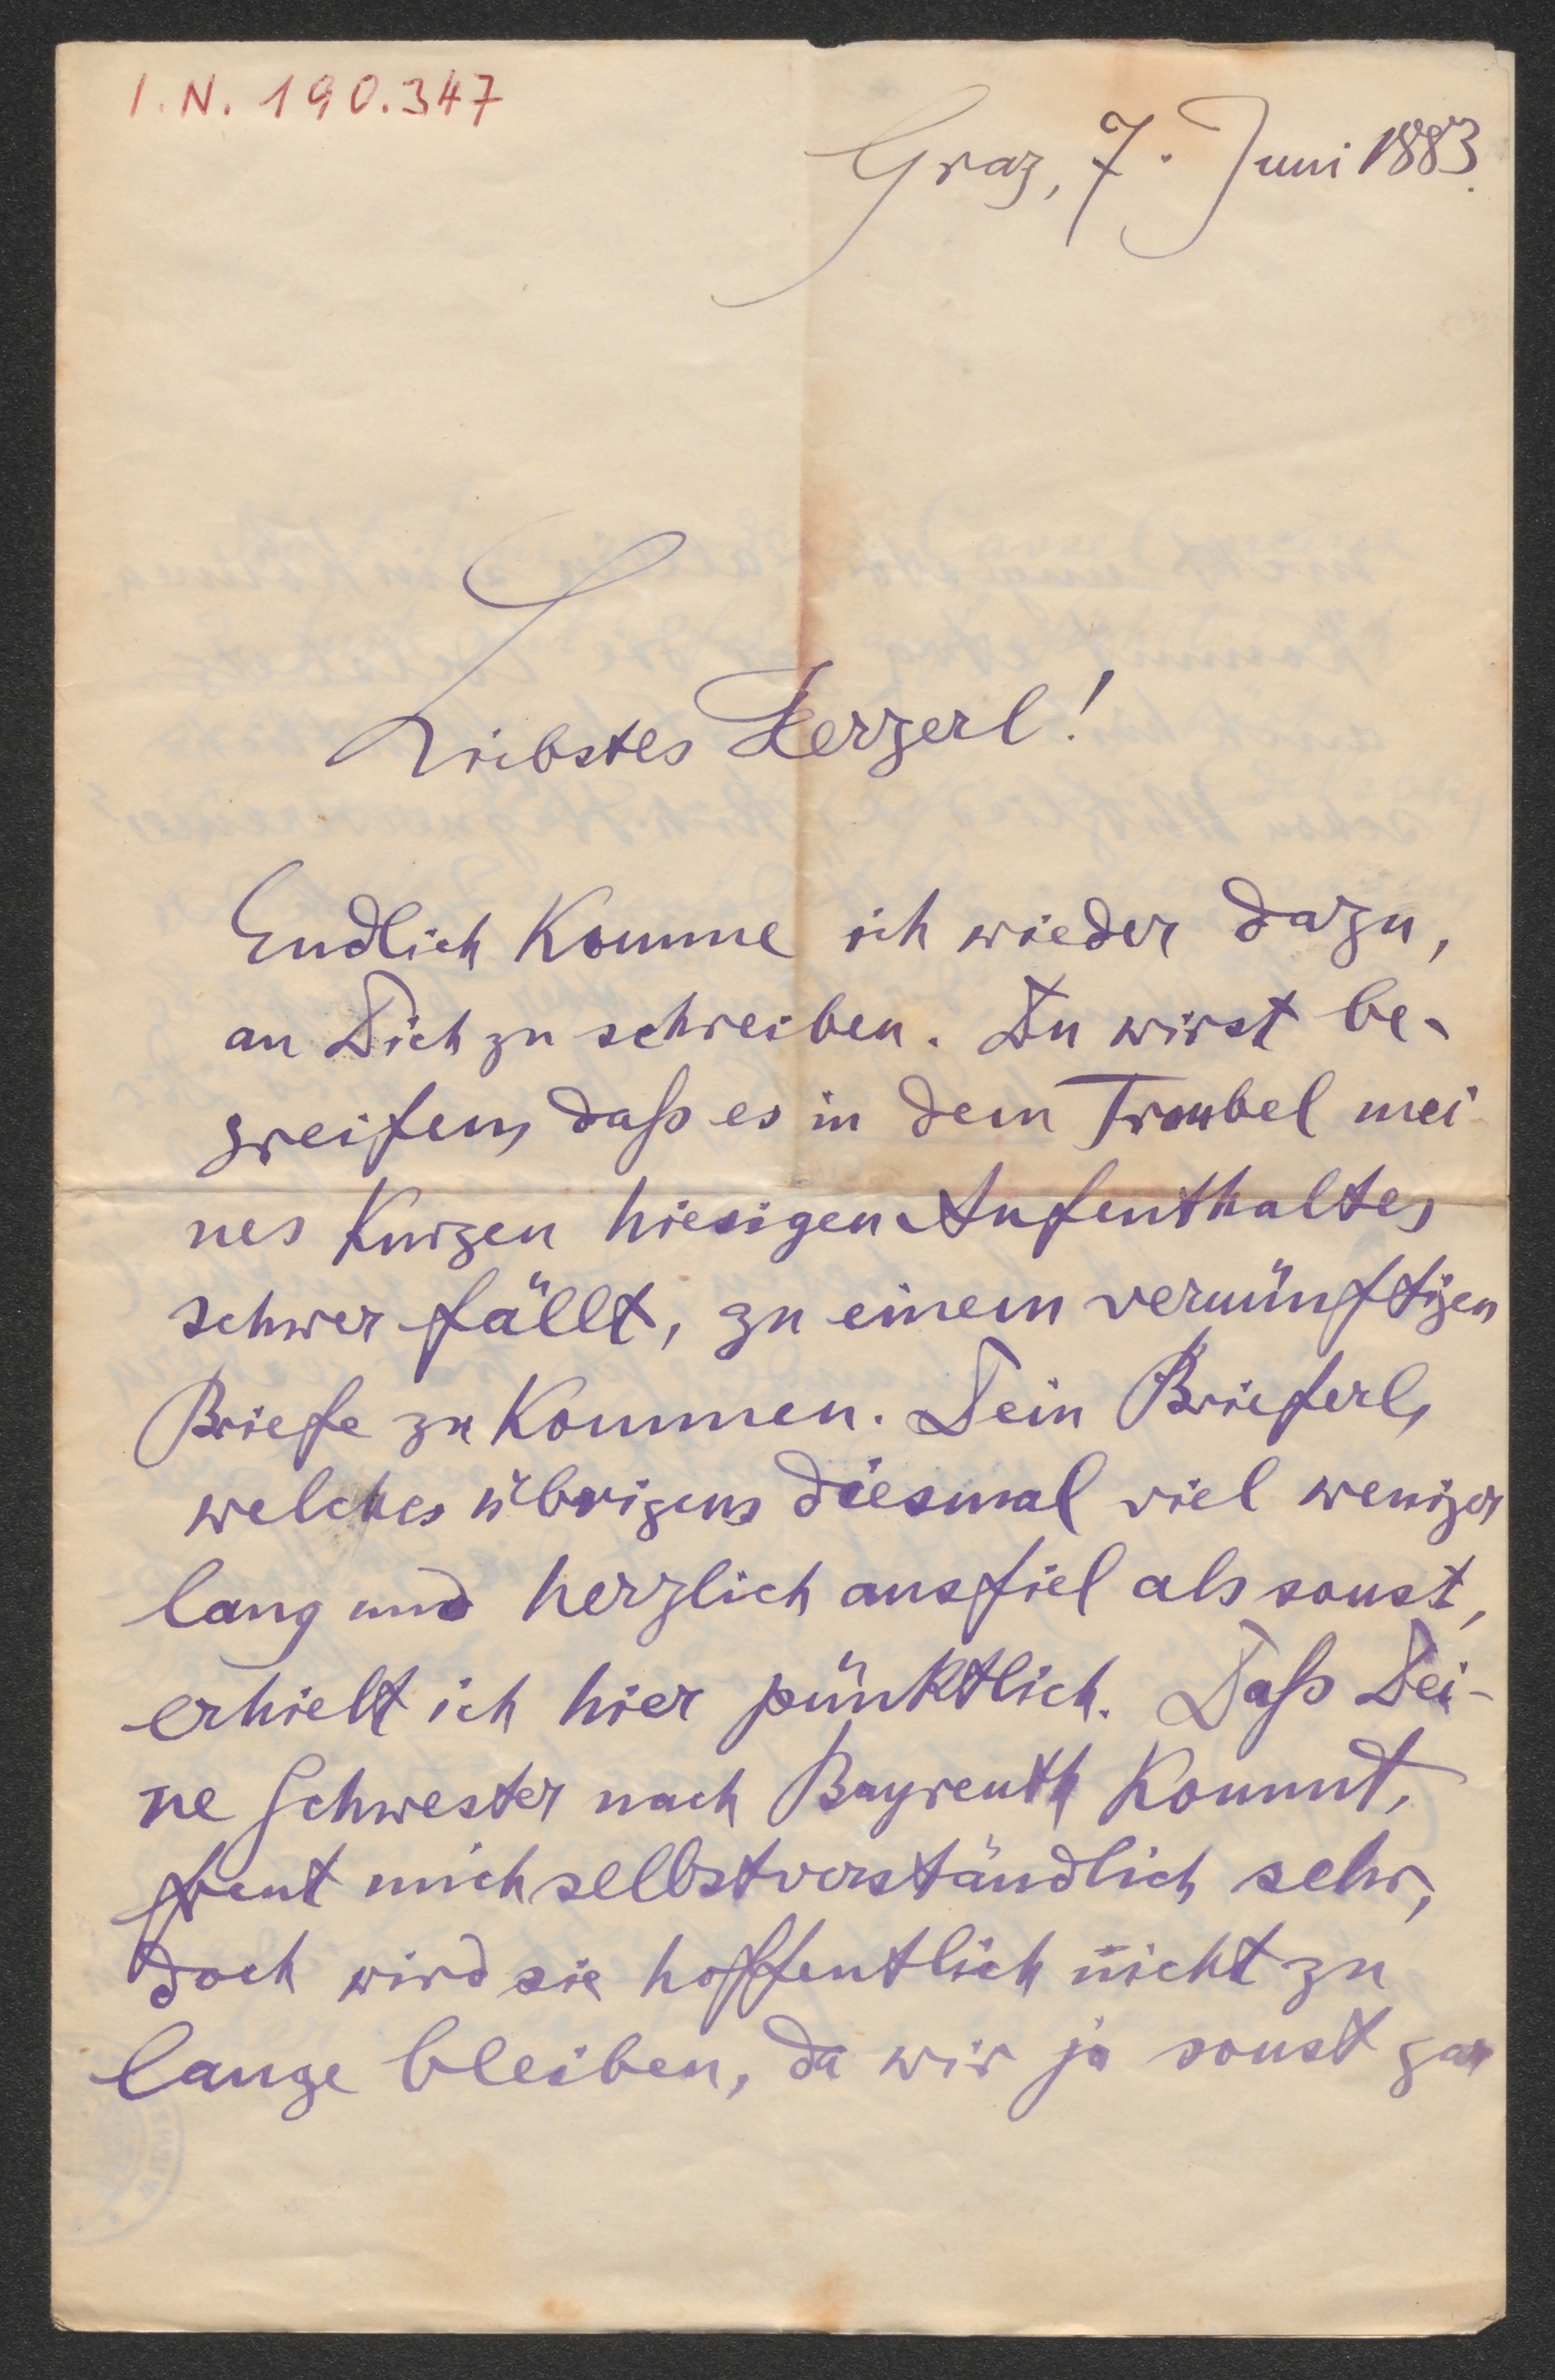 I.N. 190.347
Graz, 7. Juni 1883.
Liebstes Herzerl!
Endlich komme ich wieder dazu,
an Dich zu schreiben. Du wirst be-
greifen, daß es in dem Troubel mei
nes kurzen hiesigen Aufenthaltes
schwer fällt, zu einem vernünftigen
Briefe zu kommen. Dein Brieferl,
welches übrigens diesmal viel weniger
lang und herzlich ausfiel als sonst,
erhielt ich hier pünktlich. Daß Dei-
ne Schwester nach Bayreuth kommt,
freut mich selbstverständlich sehr,
doch wird sie hoffentlich nicht zu
lange bleiben, da wir ja sonst gar